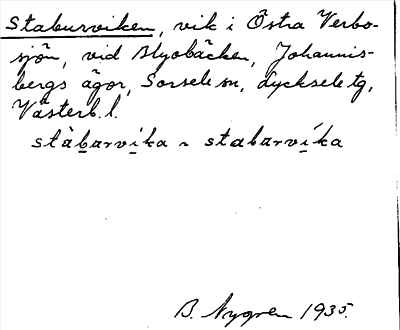 Staburviken, vik i Östra Verbo-
sjön, vid Blyobäcken, Johannis-
bergs ägor, Sorsele sn, Lycksele tg,
Västerb. l.
stàbarvíka ~ stabarvíka
B. Nygren 1935.